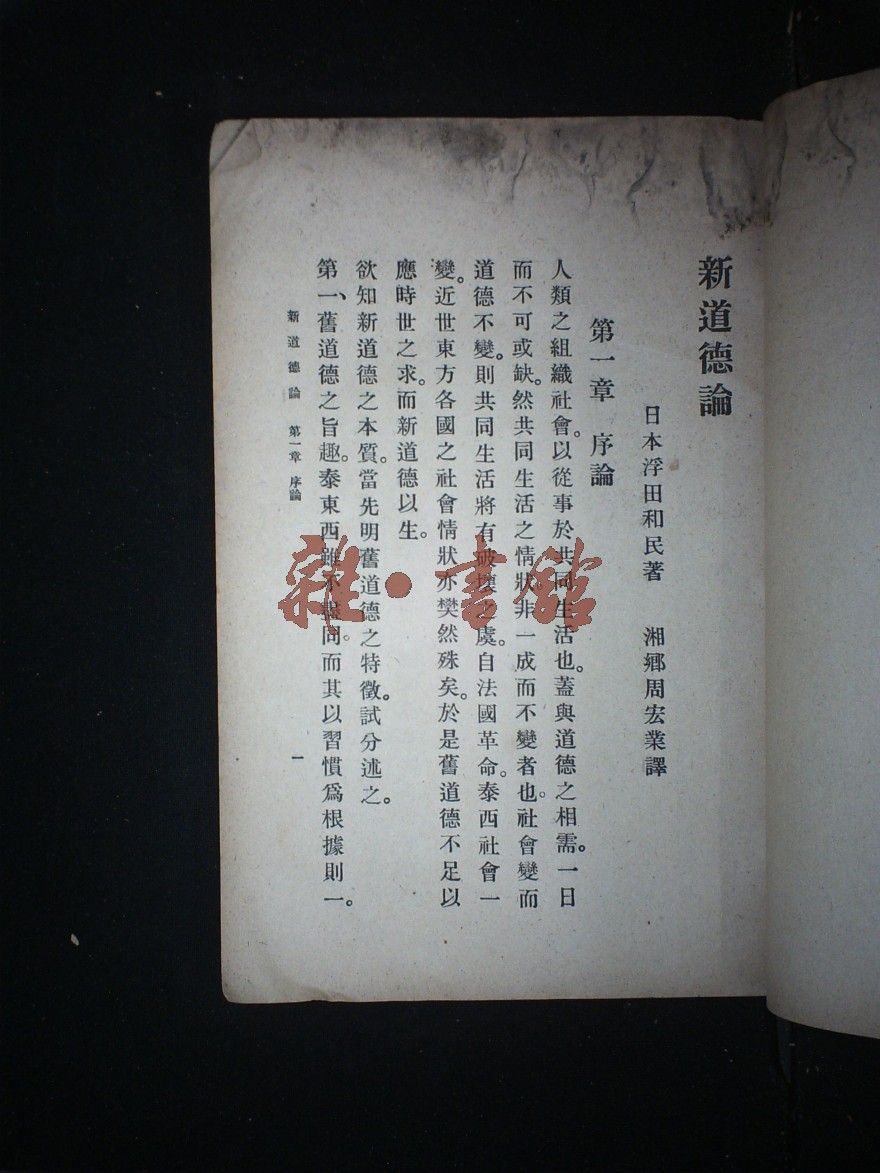 新道德論
日本浮田和民著　湘鄉周宏業譯
第一章　序論
人類之組織社會。以從事於共同生活也。蓋與道德之相需。一日
而不可或缺。然共同生活之情狀非一成而不變者也。社會變而
道德不變。則共同生活將有破壞之虞。自法國革命。泰西社會一
變。近世東方各國之社會情狀亦樊然殊矣。於是舊道德不足以
應時世之求。而新道德以生。
欲知新道德之本質。當先明舊道德之特徵。試分述之。
第一、舊道德之旨趣。泰東西雖不盡同。而其以習慣爲根據則一。
新道德論　第一章　序論
一
雜·書館